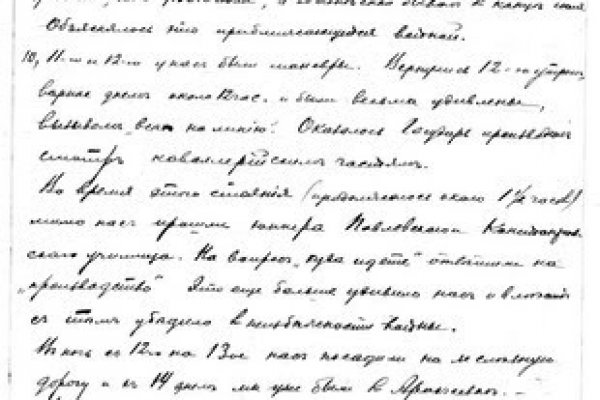 Объяснялось это приближающейся войной.
10, 11-го и 12-го у нас были маневры. Вернулись 12-го утром,
вернее днем около 12 час. и были весьма удивлены,
вызовом „всех на линию“. Оказалось Государь производил
смотр кавалерийским частям.
Во время этого стояния (продолжалось около 1½ часов)
мимо нас прошли юнкера Павловского
училища. На вопрос „куда идете“ ответили на
„производство“ Это еще больше удивило нас и
с тем убедило в неизбежности войны.
В ночь с 12го на 13ое нас посадили на железную
дорогу и с 14 днем мы уже были в